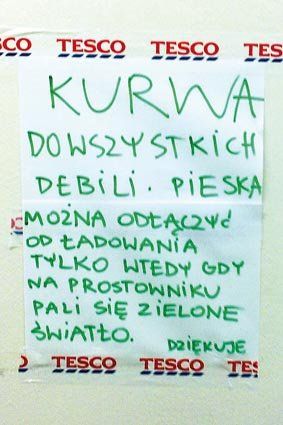 SCO TESCO TESCO
KURWA
DO WSZYSTKICH
DEBILI. PIESKA
MOŻNA ODŁĄCZYĆ
OD ŁADOWANIA
TYLKO WTEDY GDY
NA PROSTOWNIKU
PALI SIĘ ZIELONE
ŚWIATŁO.
DZIĘKUJE
TESCO TESCO